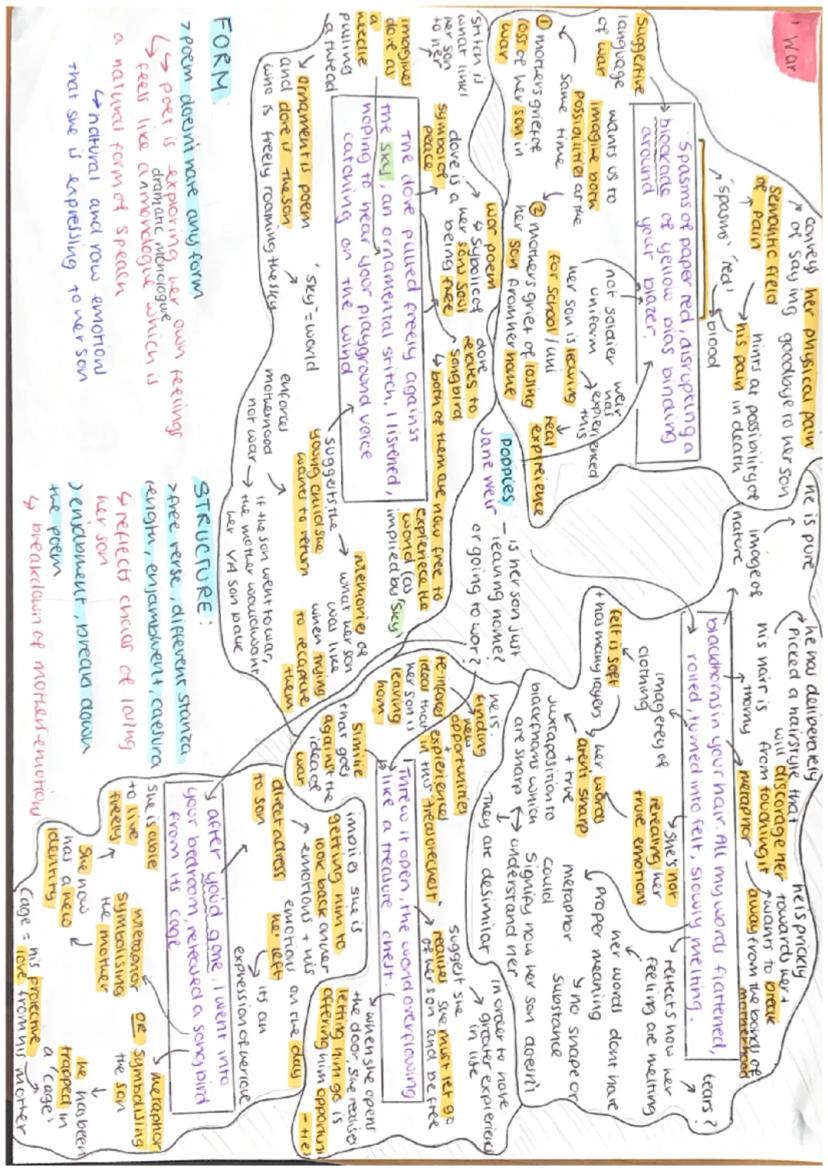 War
conveys her physical pain
of saying goodbye to her son
semantic field
of pain
hints at possibility of
his pain in death
'spasms' 'red'
blood
'Spasms of paper red, disrupting a
blockade of yellow bias binding
around your blazer.
Suggestive
language
of war
wants us to
imagine both
possibilities at the
same time
① mothers grief of
loss of her son in
war
② mothers grief of losing
her son from her home
her son is leaving
for school/uni
not soldier
uniform
weir has
experienced
this
real
experience
he is pure
image of
nature
he has deliberately
picked a hairstyle that
will discourage her
from touching it
his hair is
thorny
metaphor
he is prickly
towards her +
wants to break
away from the bond of
motherhood
blackthorns in your hair. All my words flattened,
rolled, turned into felt, slowly melting.
tears?
imagery of
clothing
felt is soft
+ has many layers
her words
aren't sharp
+ true
juxtaposition to
blackthorns which
are sharp
They are desimilar
she's not
revealing her
true emotions
reflects how her
feeling are melting
her words dont have
proper meaning
metaphor
could
signify how her son doesn't
understand her
no shape or
substance
Poppies
Jane Weir
- is her son just
leaving home?
or going to war?
stitch is
what links
her son
to her
imagines
dove as
a
needle
pulling
a thread
dove is a
symbol of
peace
war poem
symbolic of
her sons soul
being free
dove
relates to
songbird
both of them are now free to
experience the
world (as
implied by 'sky')
The dove pulled freely against
the sky, an ornamental stitch, I listened,
hoping to hear your playground voice
catching on the wind
ornament is poem
and dove is the son
who is freely roaming the sky
'sky' = world
suggests the
young child she
wants to return
memories of
what her son
was like
when trying
to recapture
them
enforces
motherhood
not war
if the son went to war,
the mother would want
her YA son back
he is
finding
new
opportunities
+ experience
in this 'treasure chest'
re-inforces
idea that
her son is
leaving
home
Simile
that goes
against the
idea of
war
Threw it open, the world overflowing
like a treasure chest.
suggest she
realises she must let go
of her son and be free
in order to have
greater experiences
in life
when she opens
the door she realises
letting him go is
offering him opportuni
-ties
implies she is
getting him to
look back on her
emotions + his
emotions on the day
he left
direct address
to son
its an
expression of her love
after you'd gone. I went into
your bedroom, released a songbird
from its cage
she is able
to live
freely
She now
has a new
identity
metaphor OR
symbolising
the mother
metaphor
symbolising
the son
he has been
trapped in
a 'cage'
cage = his protective
love from his mother
FORM:
> poem doesn't have any form
↳ poet is exploring her own feelings
feels like a monologue which is
dramatic monologue
a natural form of speech
↳ natural and raw emotion
that she is expressing to her son
STRUCTURE:
> free verse, different stanza
length, enjambment, caesura
↳ reflects chaos of losing
her son
> enjambment, break down
the poem
↳ breakdown of mothers emotion